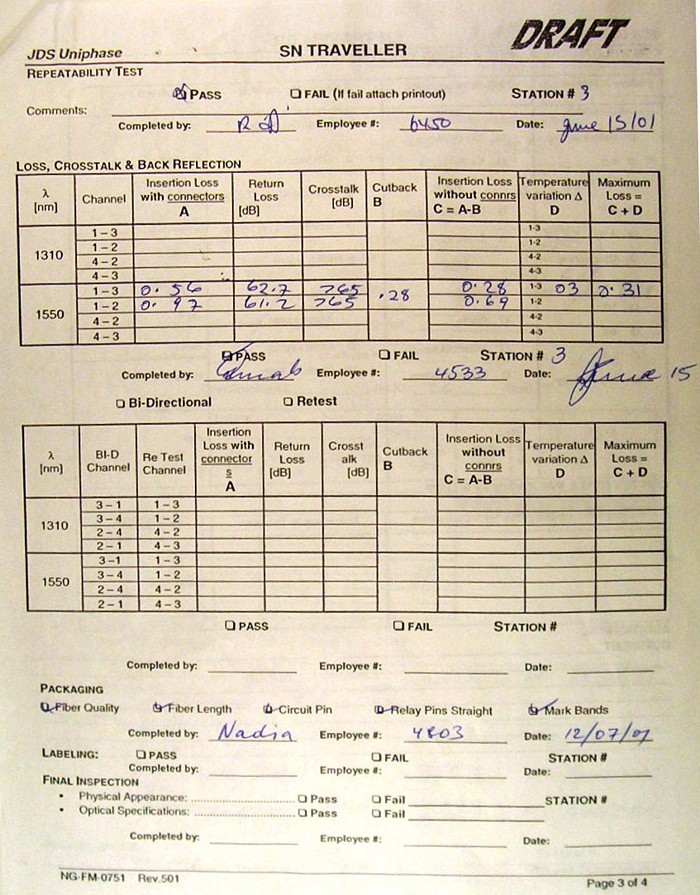 JDS Uniphase SN TRAVELLER DRAFT
REPEATABILITY TEST
PASS FAIL (If fail attach printout) STATION # 3
Comments:
Completed by: Employee #: 6450 Date: June 15/01
LOSS, CROSSTALK & BACK REFLECTION
λ [nm] Channel Insertion Loss with connectors A Return Loss [dB] Crosstalk [dB] Cutback B Insertion Loss without connrs C = A-B Temperature variation Δ D Maximum Loss = C + D
1310 1 – 3 1-3
1 – 2 1-2
4 – 2 4-2
4 – 3 4-3
1550 1 – 3 0.56 62.7 >65 .28 0.28 1-3 03 0.31
1 – 2 0.97 61.2 >65 0.69 1-2
4 – 2 4-2
4 – 3 4-3
PASS FAIL STATION # 3
Completed by: Employee #: 4533 Date: June 15
Bi-Directional Retest
λ [nm] BI-D Channel Re Test Channel Insertion Loss with connector s A Return Loss [dB] Crosst alk [dB] Cutback B Insertion Loss without connrs C = A-B Temperature variation Δ D Maximum Loss = C + D
1310 3 – 1 1 – 3
3 – 4 1 – 2
2 – 4 4 – 2
2 – 1 4 – 3
1550 3 – 1 1 – 3
3 – 4 1 – 2
2 – 4 4 – 2
2 – 1 4 – 3
PASS FAIL STATION #
Completed by: Employee #: Date:
PACKAGING
Fiber Quality Fiber Length Circuit Pin Relay Pins Straight Mark Bands
Completed by: Nadia Employee #: 4803 Date: 12/07/01
LABELING: PASS FAIL STATION #
Completed by: Employee #: Date:
FINAL INSPECTION
• Physical Appearance: Pass Fail STATION #
• Optical Specifications: Pass Fail
Completed by: Employee #: Date:
NG-FM-0751 Rev.501 Page 3 of 4